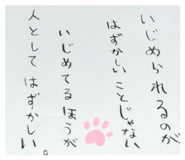 いじめられるのが
はずかしいことじゃない
いじめてるほうが
人として はずかしい。